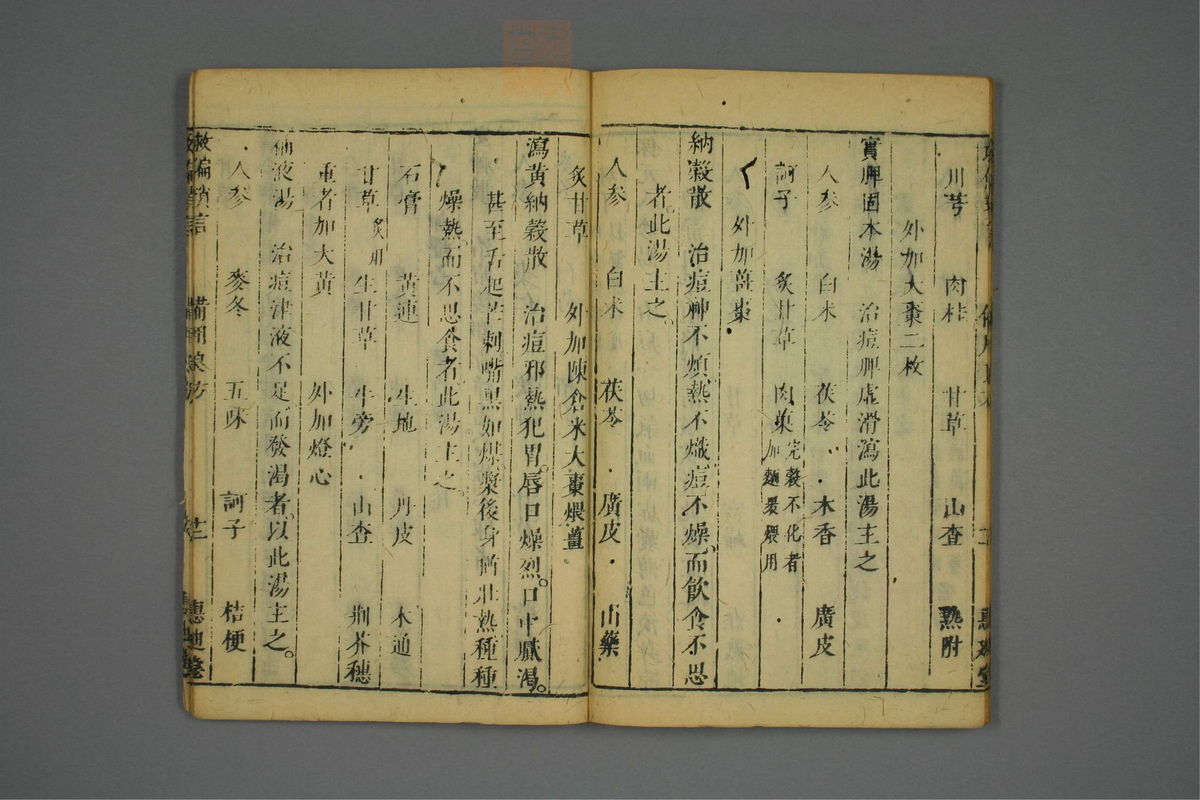 川芎 肉桂 甘草 山查 熟附
外加大棗二枚
實脾固本湯 治痘脾虛滑瀉此湯主之
人參 白朮 茯苓 木香 廣皮
訶子 炙甘草 肉菓 完穀不化者加麵裹煨用
外加薑棗
納穀散 治痘神不煩熱不熾痘不燥而飲食不思
者此湯主之
人參 白朮 茯苓 廣皮 山藥
炙甘草 外加陳倉米大棗煨薑
瀉黃納穀散 治痘邪熱犯胃。唇口燥烈。口中膩渴。
甚至舌起芒刺嘴黑如煤漿後身猶壯熱種種
燥熱而不思食者此湯主之。
石膏 黃連 生地 丹皮 木通
甘草 生甘草 牛旁 山查 荆芥穗
重者加大黃 外加燈心
液湯 治痘津液不足而發渴者。以此湯主之。
人參 麥冬 五味 訶子 桔梗
救偏瑣言 備用良方